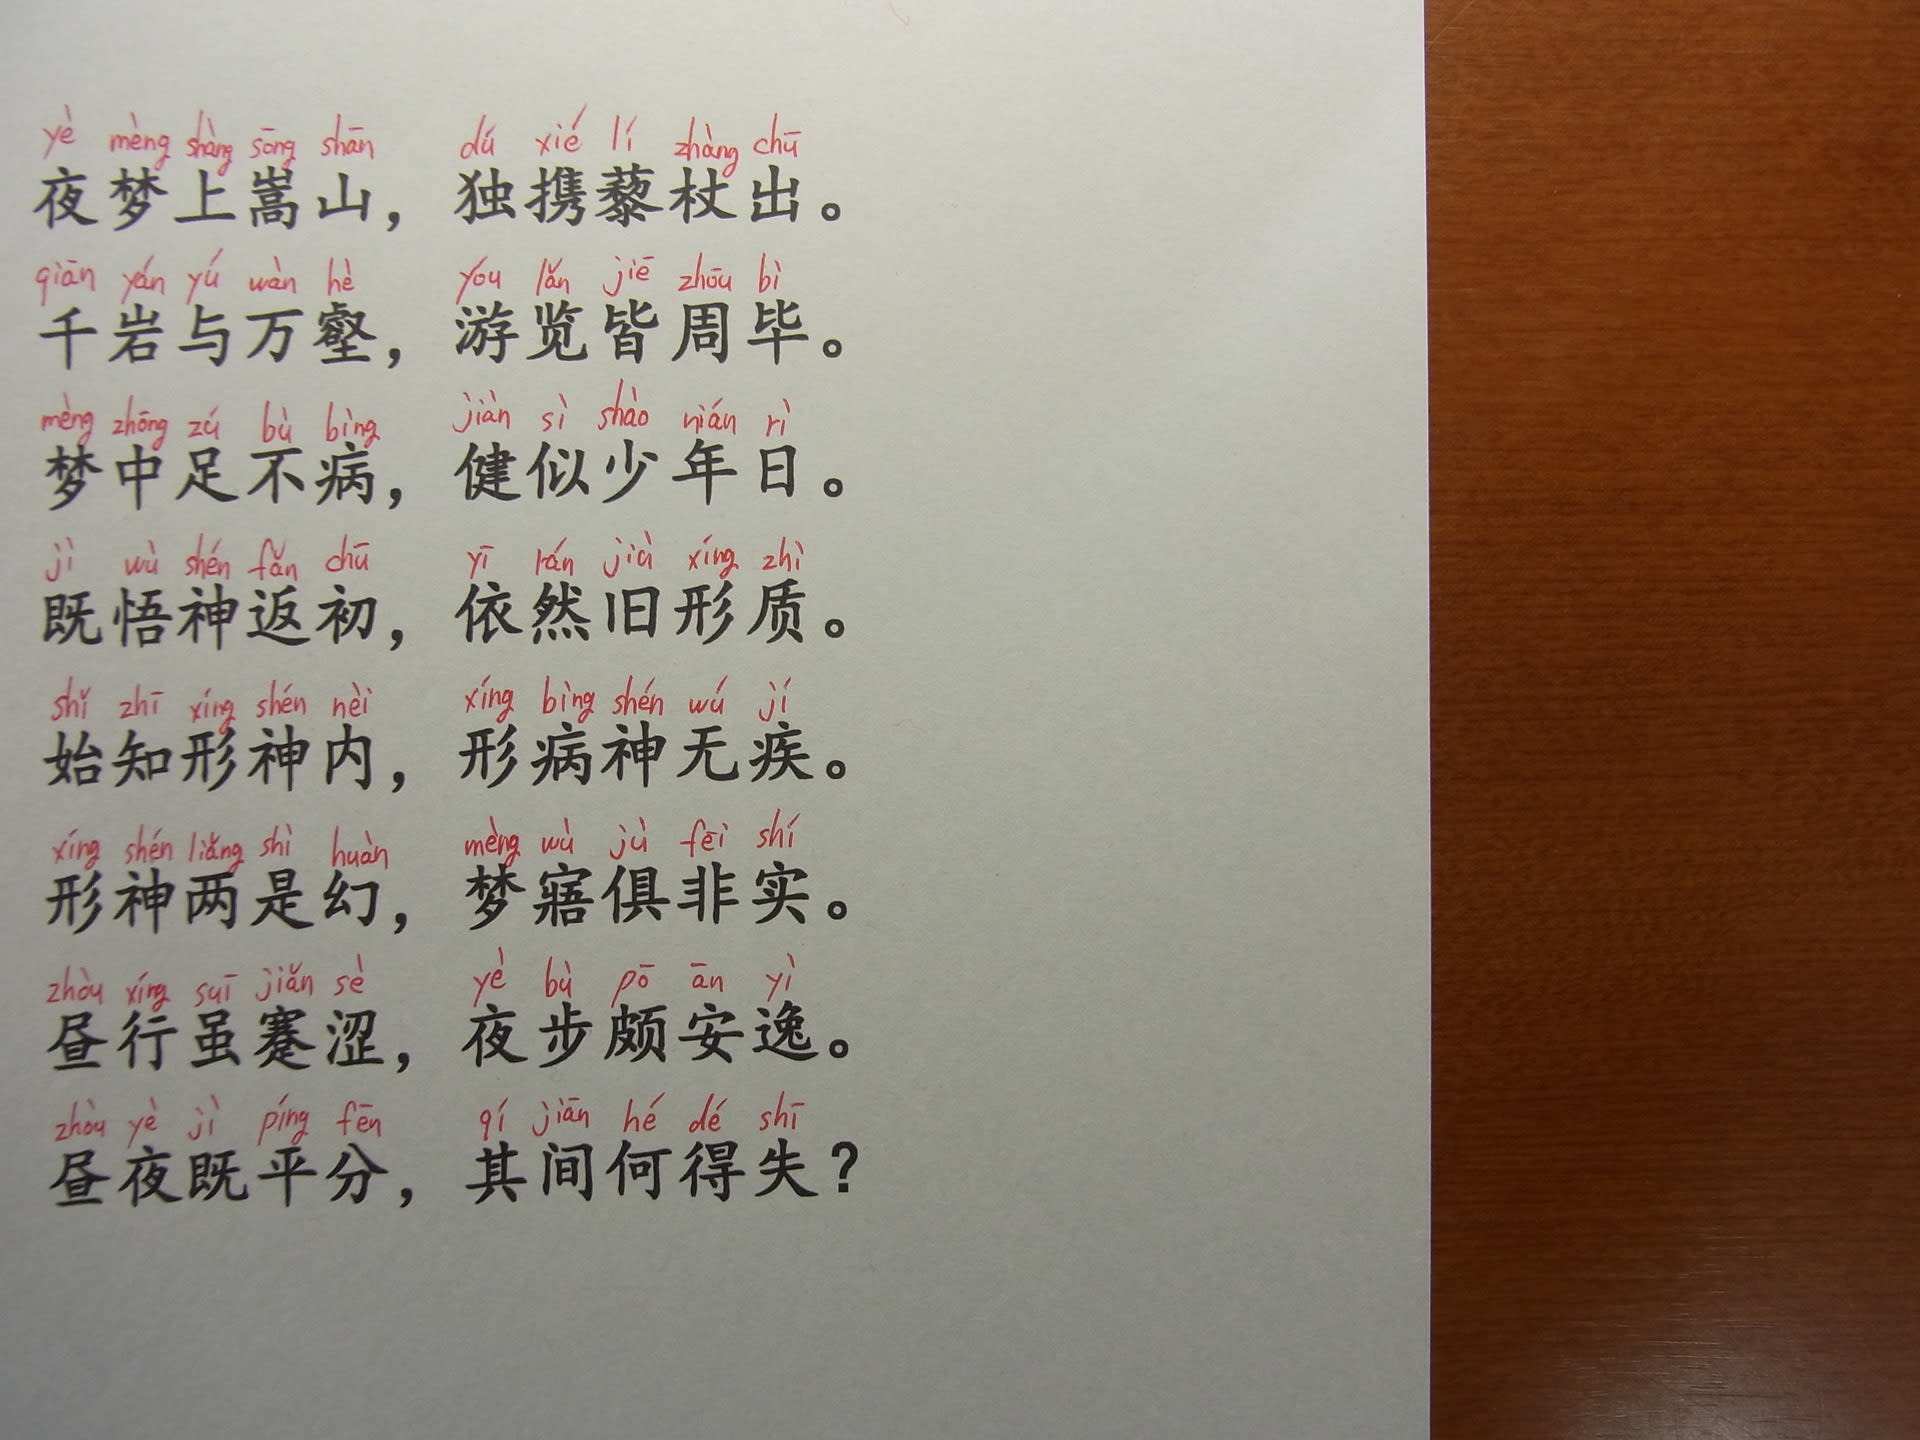 yè mèng shàng sōng shān dú xié lí zhàng chū
夜梦上嵩山，独携藜杖出。
qiān yán yú wàn hè yóu lǎn jiē zhōu bì
千岩与万壑，游览皆周毕。
mèng zhōng zú bù bìng jiàn sì shào nián rì
梦中足不病，健似少年日。
jì wù shén fǎn chū yī rán jiù xíng zhì
既悟神返初，依然旧形质。
shǐ zhī xíng shén nèi xíng bìng shén wú jí
始知形神内，形病神无疾。
xíng shén liǎng shì huàn mèng wù jù fēi shí
形神两是幻，梦寤俱非实。
zhòu xíng suī jiǎn sè yè bù pō ān yì
昼行虽蹇涩，夜步颇安逸。
zhòu yè jì píng fēn qí jiān hé dé shī
昼夜既平分，其间何得失？